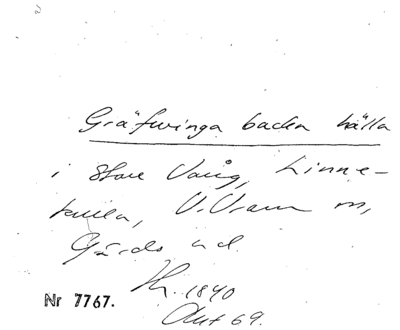 Gräfwinga backa källa
i Stora Vång, Linne-
kulla, V. Vram sn,
Gärds hd.
Kr. 1840
Avt 69.
Nr 7767.